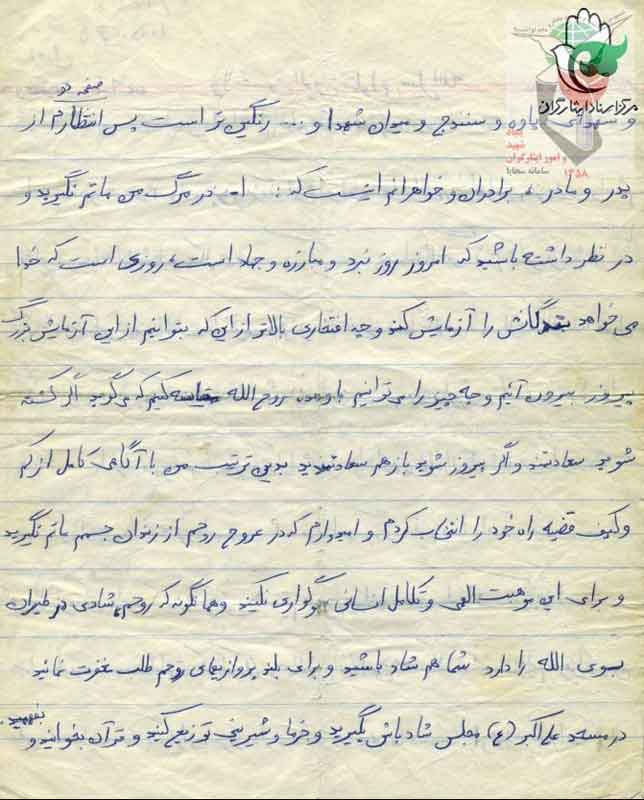 مرکز اسناد ایثارگران
بنیاد
شهید
و امور ایثارگران
۱۳۵۸
سامانه سجایا
صفحه دو
و شهدای پاوه و سنندج و میدان شهدا و ... رنگین تر است پس انتظارم از
پدر و مادر، برادران و خواهرانم اینست که: در مرگ من ماتم نگیرید و
در نظر داشته باشید که امروز روز نبرد و مبارزه و جهاد است، روزی است که خدا
می خواهد بندگانش را آزمایش کند و چه افتخاری بالاتر از این که بتوانیم از این آزمایش بزرگ
پیروز بیرون آئیم و چه چیز را می توانیم با وعده روح الله مقایسه کنیم که می گوید اگر کشته
شوید سعادتمندید و اگر پیروز شوید باز هم سعادتمندید بدین ترتیب من با آگاهی کامل از کم
و کیف قضیه راه خود را انتخاب کردم و امیدوارم که در عروج روحم از زندان جسم ماتم نگیرید
و برای این موهبت الهی و تکامل انسانی سوگواری نکنید و همانگونه که روحم شادی در طیران
بسوی الله را دارد شما هم شاد باشید و برای بلند پروازیهای روحم طلب مغفرت نمائید
در مسجد علی اکبر (ع) مجلس شادباش بگیرید و خرما و شیرینی توزیع کنید و قرآن بخوانید و بفهمید